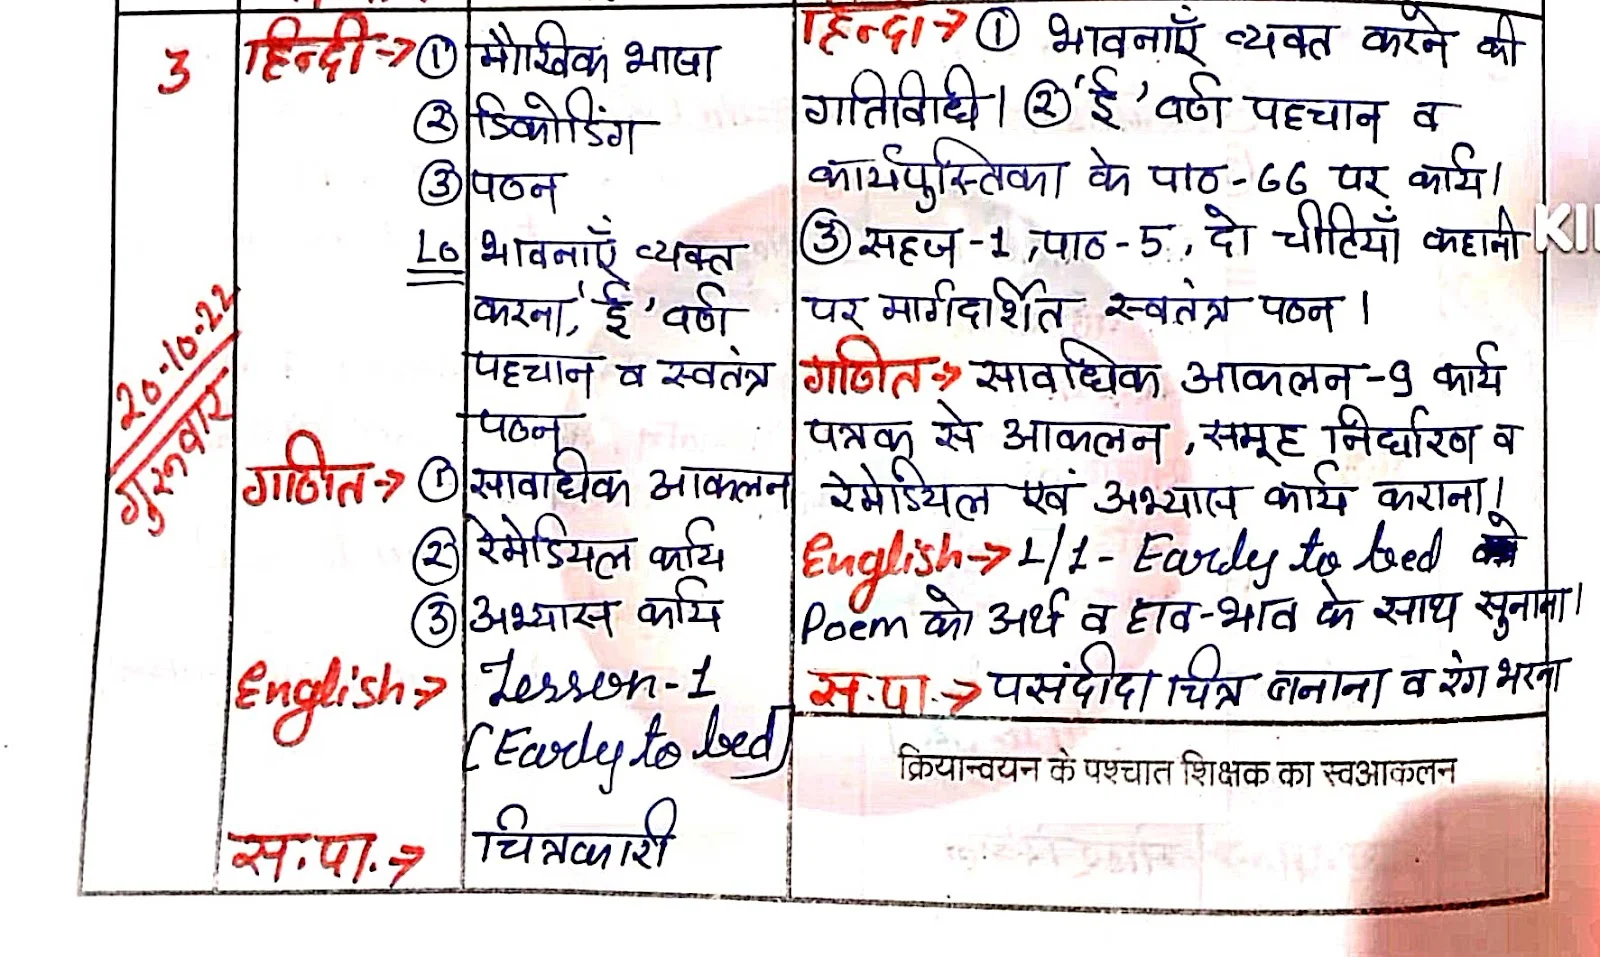 3
20-10-22
गुरूवार
हिन्दी → ① मौखिक भाषा
② डिकोडिंग
③ पठन
LO भावनाएँ व्यक्त
करना, 'ई' वर्ण
पहचान व स्वतंत्र
पठन
गणित → ① सावधिक आकलन
② रेमेडियल कार्य
③ अभ्यास कार्य
English → Lesson-1
[Early to bed]
स.पा. → चित्रकारी
हिन्दी → ① भावनाएँ व्यक्त करने की
गतिविधि। ② 'ई' वर्ण पहचान व
कार्यपुस्तिका के पाठ-66 पर कार्य।
③ सहज-1, पाठ-5, दो चीटियाँ कहानी
पर मार्गदर्शित स्वतंत्र पठन।
गणित → सावधिक आकलन-9 कार्य
पत्रक से आकलन, समूह निर्धारण व
रेमेडियल एवं अभ्यास कार्य कराना।
English → L/1- Early to bed
Poem को अर्थ व हाव-भाव के साथ सुनाना।
स.पा. → पसंदीदा चित्र बनाना व रंग भरना
क्रियान्वयन के पश्चात शिक्षक का स्वआकलन
KI